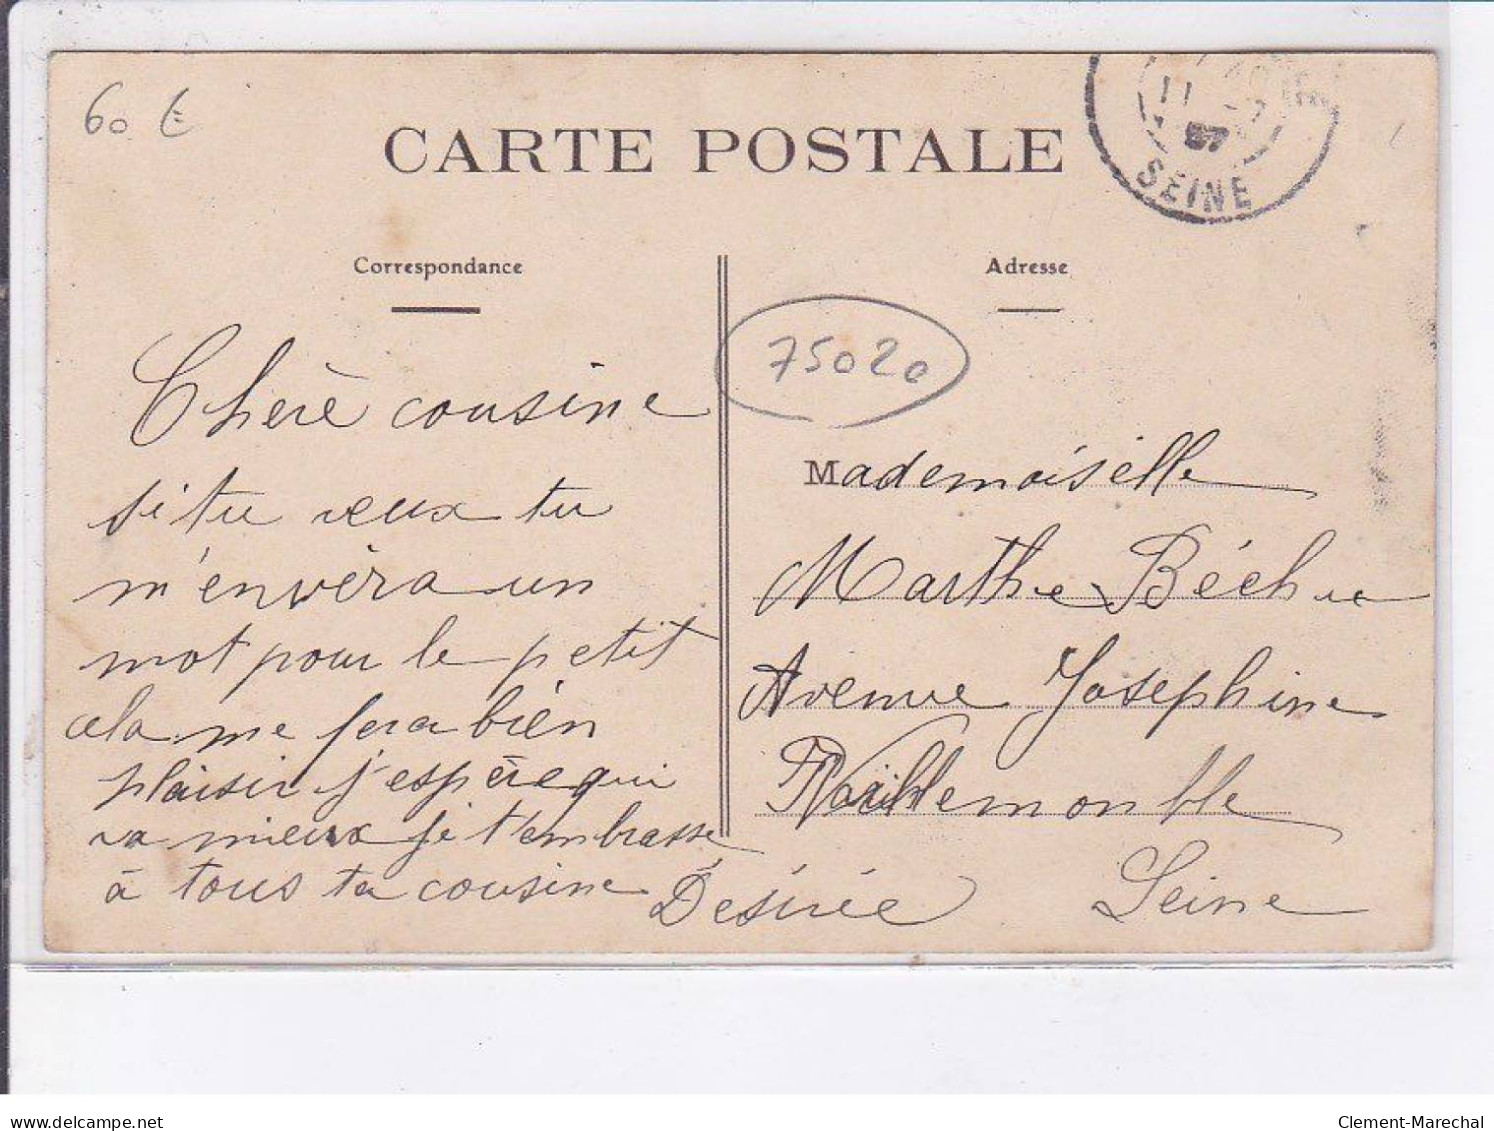 60 €
CARTE POSTALE
11
07
SEINE
Correspondance
Adresse
75020
Cherè cousine
si tu veux tu
m'envèra un
mot pour le petit
cela me fera bien
plaisir j'espère qui
va mieux je t'embrasse
à tous ta cousine Desirée
Mademoiselle
Marthe Béchue
Avenue Joséphine
Seine
delcampe.net
Clement-Marechal